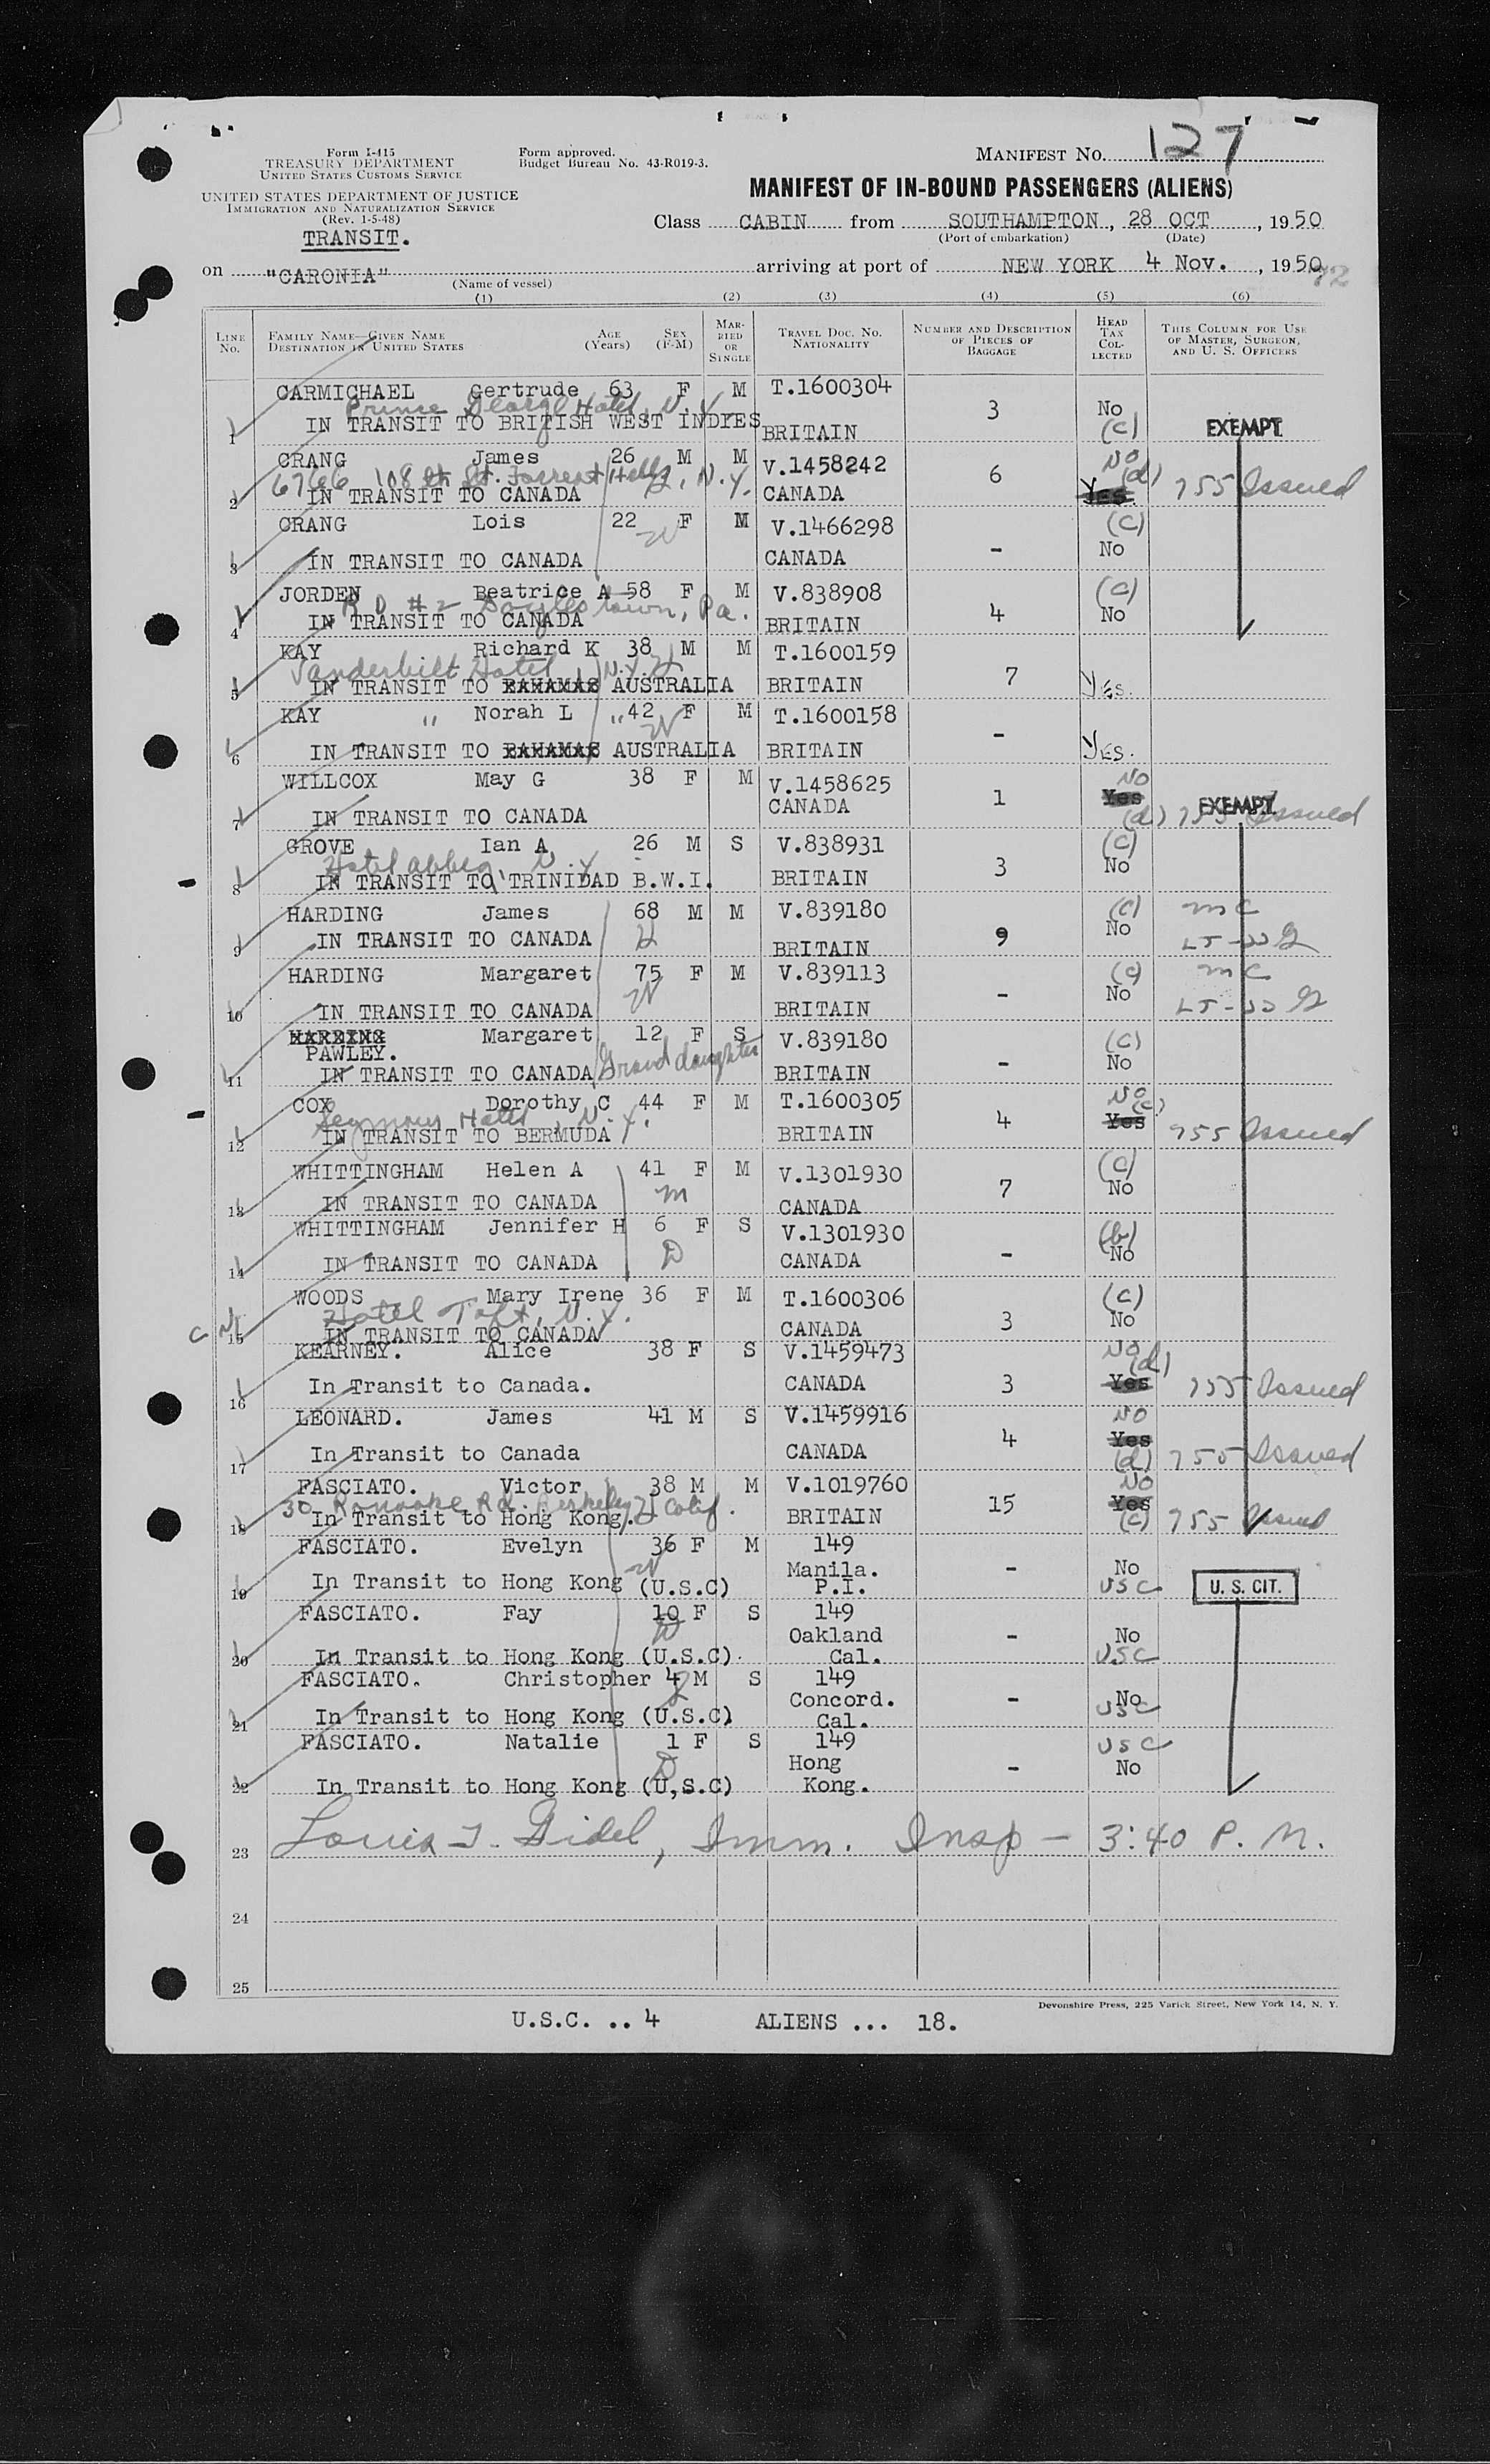 Form I-415
TREASURY DEPARTMENT
UNITED STATES CUSTOMS SERVICE
UNITED STATES DEPARTMENT OF JUSTICE
IMMIGRATION AND NATURALIZATION SERVICE
(Rev. 1-5-48)
TRANSIT.
Form approved.
Budget Bureau No. 43-R019-3.
MANIFEST No. 127
MANIFEST OF IN-BOUND PASSENGERS (ALIENS)
Class CABIN from SOUTHAMPTON, 28 OCT, 1950
(Port of embarkation) (Date)
on "CARONIA" arriving at port of NEW YORK 4 Nov., 1950
72
(Name of vessel)
(1) (2) (3) (4) (5) (6)
LINE No. FAMILY NAME—GIVEN NAME DESTINATION IN UNITED STATES AGE (Years) SEX (F-M) MARRIED OR SINGLE TRAVEL DOC. NO. NATIONALITY NUMBER AND DESCRIPTION OF PIECES OF BAGGAGE HEAD TAX COLLECTED THIS COLUMN FOR USE OF MASTER, SURGEON, AND U. S. OFFICERS
CARMICHAEL Gertrude 63 F M T.1600304 3 No
Prince George Hotel, N.Y.
1 IN TRANSIT TO BRITISH WEST INDIES BRITAIN (c) EXEMPT
CRANG James 26 M M V.1458242 6 NO (d)
6766 108th St. Forrest Hills, N.Y. H
2 IN TRANSIT TO CANADA CANADA Yes 755 Issued
CRANG Lois 22 F M V.1466298 (c)
W
3 IN TRANSIT TO CANADA CANADA - No
JORDEN Beatrice A 58 F M V.838908 4 (c)
R D #2 Doylestown, Pa.
4 IN TRANSIT TO CANADA BRITAIN No
KAY Richard K 38 M M T.1600159 7
Vanderbilt Hotel N.Y. H
5 IN TRANSIT TO BAHAMAS AUSTRALIA BRITAIN YES.
KAY " Norah L " 42 F M T.1600158 -
W
6 IN TRANSIT TO BAHAMAS AUSTRALIA BRITAIN YES.
WILLCOX May G 38 F M V.1458625 1 NO Yes
7 IN TRANSIT TO CANADA CANADA (d) 755 Issued EXEMPT
GROVE Ian A 26 M S V.838931 3 (c)
Hotel Abbey, N.Y.
8 IN TRANSIT TO TRINIDAD B.W.I. BRITAIN No
HARDING James 68 M M V.839180 9 (c) No mc
9 IN TRANSIT TO CANADA H BRITAIN
HARDING Margaret 75 F M V.839113 - (c) No mc
10 IN TRANSIT TO CANADA W BRITAIN
HARDING Margaret 12 F S V.839180 - (c)
PAWLEY.
11 IN TRANSIT TO CANADA Grand daughter BRITAIN No
COX Dorothy C 44 F M T.1600305 4 NO (c)
Seymour Hotel, N.Y.
12 IN TRANSIT TO BERMUDA BRITAIN Yes 755 Issued
WHITTINGHAM Helen A 41 F M V.1301930 7 (c)
m
13 IN TRANSIT TO CANADA CANADA No
WHITTINGHAM Jennifer H 6 F S V.1301930 - (b)
D
14 IN TRANSIT TO CANADA CANADA No
WOODS Mary Irene 36 F M T.1600306 3 (c)
Hotel Taft, N.Y.
15 IN TRANSIT TO CANADA CANADA No
KEARNEY. Alice 38 F S V.1459473 3 NO (d)
16 In Transit to Canada. CANADA Yes 755 Issued
LEONARD. James 41 M S V.1459916 4 NO Yes
17 In Transit to Canada CANADA (d) 755 Issued
FASCIATO. Victor 38 M M V.1019760 15 NO Yes
30 Roanoke Rd. Berkeley H Calif.
18 In Transit to Hong Kong. BRITAIN (c) 755 Issued
FASCIATO. Evelyn 36 F M 149 - No
W
19 In Transit to Hong Kong (U.S.C) Manila. P.I. USC U. S. CIT.
FASCIATO. Fay 10 F S 149 - No
D
20 In Transit to Hong Kong (U.S.C). Oakland Cal. USC
FASCIATO. Christopher 4 M S 149 - No
21 In Transit to Hong Kong (U.S.C) Concord. Cal. USC
FASCIATO. Natalie 1 F S 149 - USC
D
22 In Transit to Hong Kong (U,S.C) Hong Kong. No
23 Louis J. Gidel, Imm. Insp - 3:40 P. M.
24
25
Devonshire Press, 225 Varick Street, New York 14, N. Y.
U.S.C. .. 4 ALIENS ... 18.